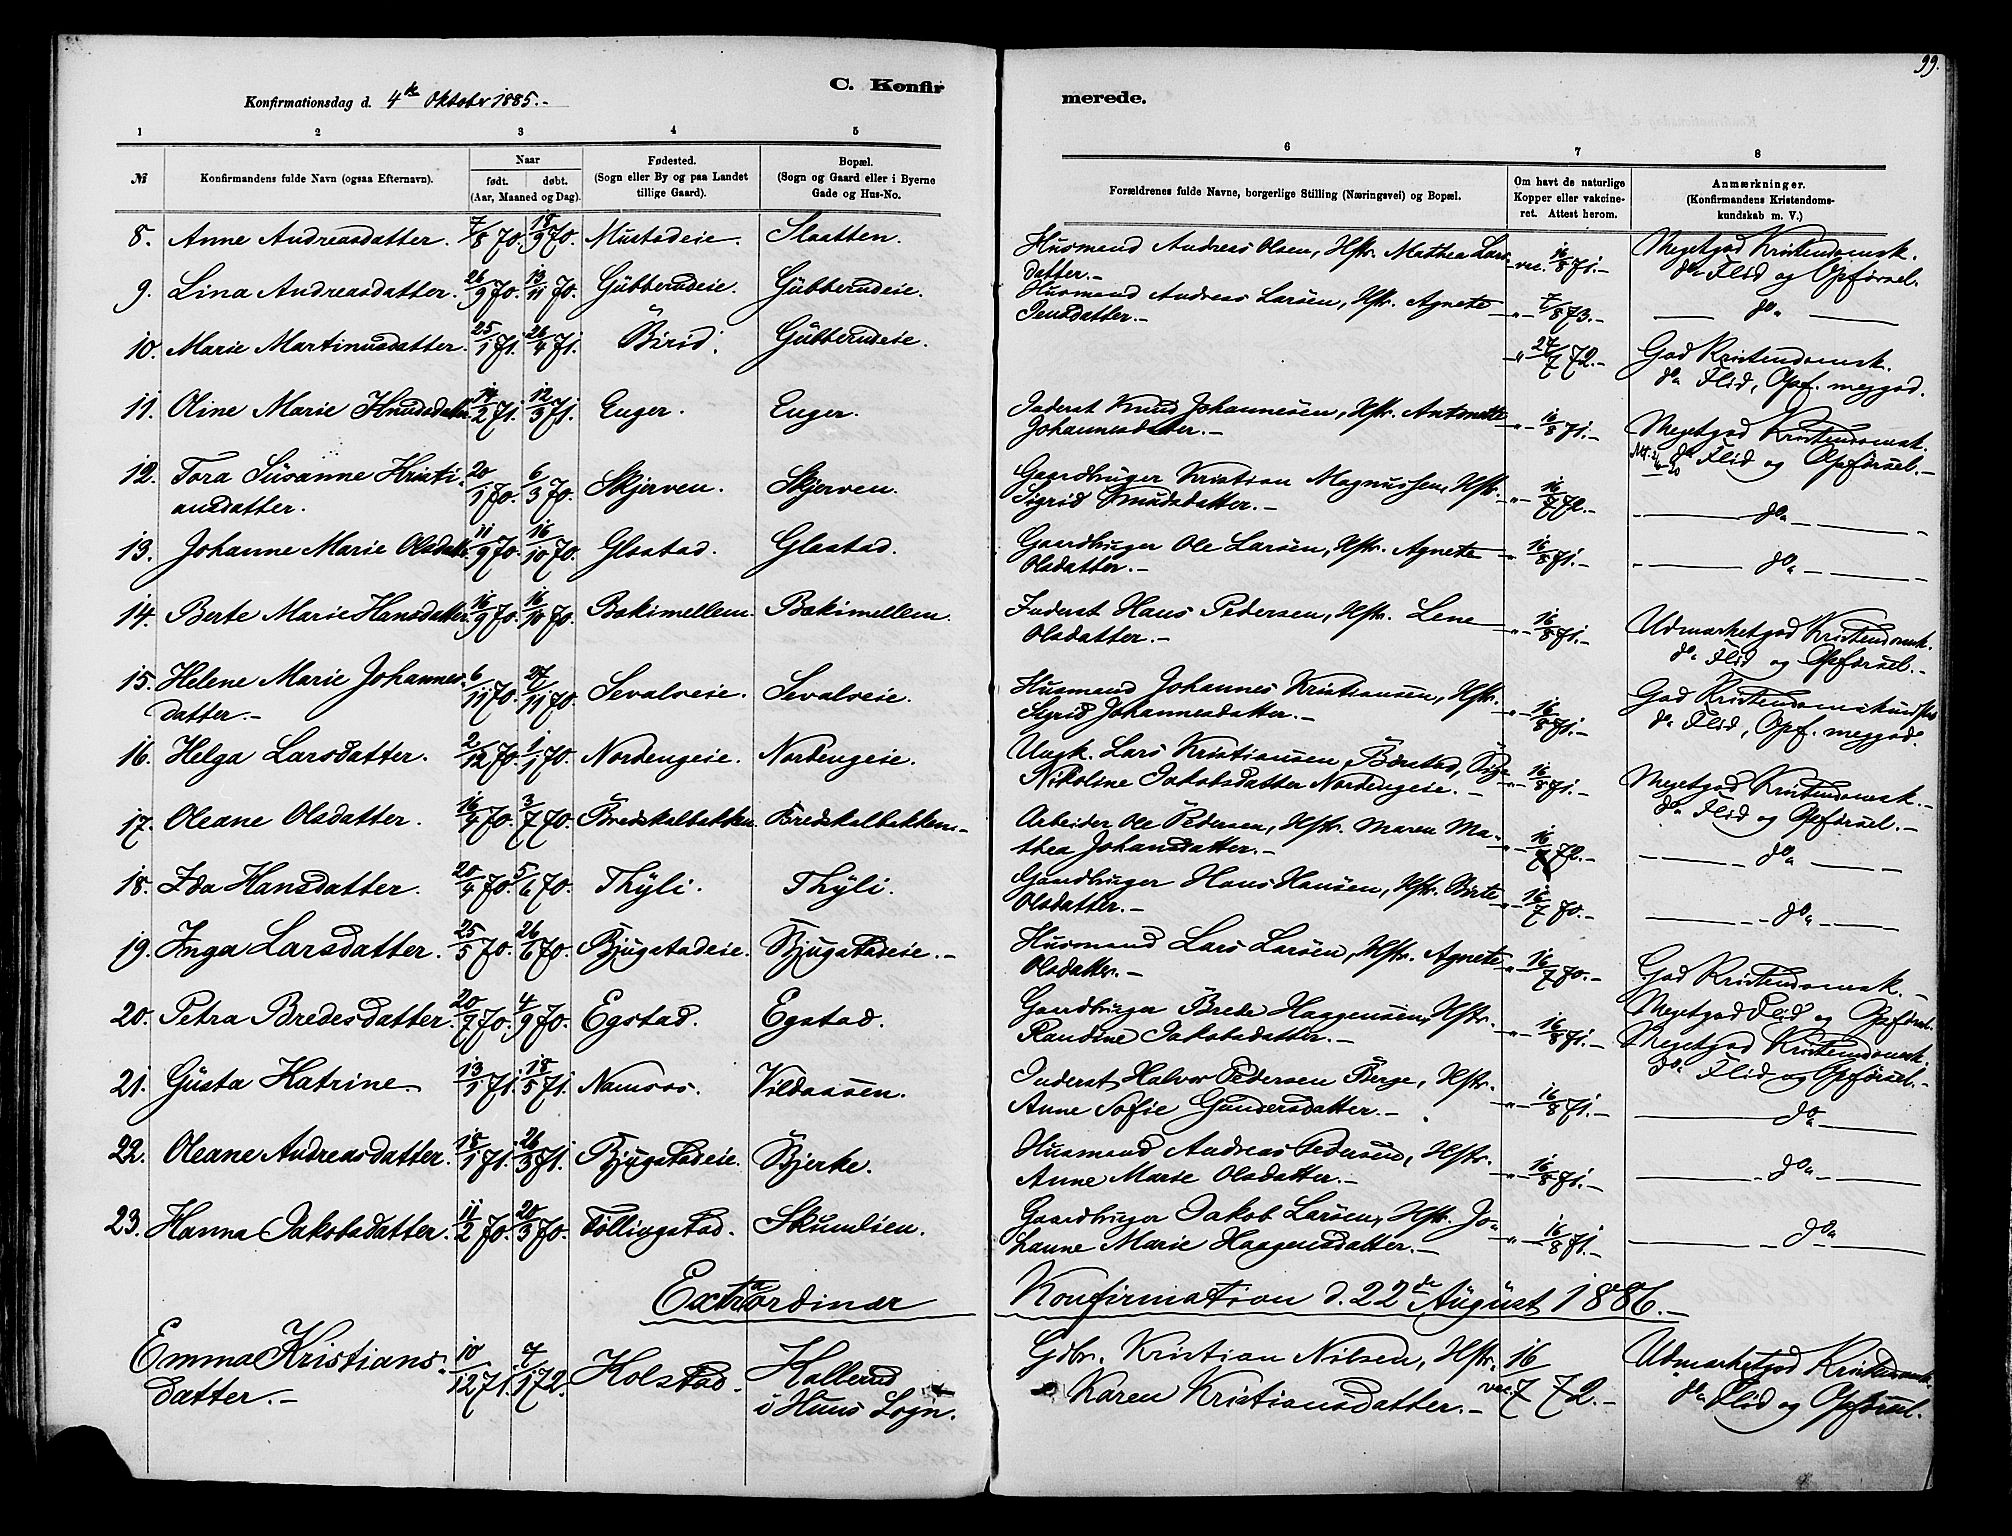 99.
Konfirmationsdag d. 4de Oktober 1885.-
C. Konfirmerede.
1 2 3 4 5 6 7 8
№
Konfirmandens fulde Navn (ogsaa Efternavn).
Naar
født. døbt.
(Aar, Maaned og Dag).
Fødested.
(Sogn eller By og paa Landet
tillige Gaard).
Bopæl.
(Sogn og Gaard eller i Byerne
Gade og Hus-No.
Forældrenes fulde Navne, borgerlige Stilling (Næringsvei) og Bopæl.
Om havt de naturlige
Kopper eller vakcine-
ret. Attest herom.
Anmærkninger.
(Konfirmandens Kristendoms-
kundskab m. V.)
8. Anne Andreasdatter. 7/8 70. 18/9 70. Mustadeie. Slaatten. Husmand Andreas Olsen, Hstr. Mathea Lars- vac. 16/8 71.- Megetgod Kristendomsk.
datter.- do Flid og Opførsel.
9. Lina Andreasdatter. 26/9 70. 13/11 70. Gübberudeie. Gübberudeie. Husmand Andreas Larsen, Hstr. Agnete -"- 7/8 73.- do
Jensdatter.-
10. Marie Martinusdatter. 25/1 71. 26/4 71. Birid. Gübberudeie. -"- 27/7 72.- God Kristendomsk.
do Flid, Opf. meggod.
11. Oline Marie Knudsdatter 14/2 71. 12/3 71. Enger. Enger. Inderst Knud Johannesen, Hstr. Antonette -"- 16/8 71.- Megetgod Kristendomsk.
Johannesdatter.- do Flid og Opførsel.-
12. Tora Susanne Kristi- 20/1 70. 6/3 70. Skjerven. Skjerven. Gaardbruger Kristian Magnussen, Hstr. -"- 16/7 72.- do
ansdatter. Sigrid Knudsdatter.-
13. Johanne Marie Olsdatter 11/9 70. 16/10 70. Glæstad. Glæstad. Gaardbruger Ole Larsen, Hstr. Agnete -"- 16/8 71.- do
Olsdatter.-
14. Berte Marie Hansdatter 16/9 70. 16/10 70. Bakimellem. Bakimellem. Inderst Hans Pedersen, Hstr. Lene -"- 16/8 71.- Udmærketgod Kristendomsk.
Olsdatter.- do Flid og Opførsel.-
15. Helene Marie Johannes- 6/11 70. 27/11 70. Sevalveie. Sevalveie. Husmand Johannes Kristiansen, Hstr. -"- 16/8 71.- God Kristendomskundsk
datter.- Sigrid Johannesdatter.- do Flid, Opf. meggod.
16. Helga Larsdatter. 2/12 70. 1/1 70. Nordengeie. Nordengeie. Ungk. Lars Kristiansen, Børstad, Pige -"- 16/8 71.- Megetgod Kristendomsk.-
Nikoline Jakobsdatter Nordengeie.- do Flid og Opførsel.-
17. Oleane Olsdatter. 16/4 70. 3/7 70. Bredskalbakken. Bredskalbakken.- Arbeider Ole Pedersen, Hstr. Maren Ma- -"- 16/7 72.- do
thea Johansdatter.-
18. Ida Hansdatter. 20/4 70. 5/6 70. Thyli. Thyli. Gaardbruger Hans Hansen, Hstr. Birte -"- 16/7 70.- do
Olsdatter.-
19. Inga Larsdatter. 25/5 70. 26/6 70. Bjugstadeie. Bjugstadeie.- Husmand Lars Larsen, Hstr. Agnete -"- 16/7 70.- God Kristendomsk.-
Olsdatter.- Megetgod Flid og Opførsel.
20. Petra Bredesdatter. 20/7 70. 4/9 70. Egstad. Egstad. Gaardbruger Brede Haagensen, Hstr. -"- 16/8 71.- Megetgod Kristendomsk.
Randine Jakobsdatter.- do Flid og Opførsel.-
21. Gusta Katrine.- 13/1 71. 18/5 71. Namsos. Vildaasen. Inderst Halvor Pedersen Berge, Hstr. -"- 16/8 71.- do
Anne Sofie Gundersdatter.-
22. Oleane Andreasdatter. 18/1 71. 26/3 71. Bjugstadeie. Bjerke. Husmand Andreas Pedersen, Hstr. -"- 16/8 71.- do
Anne Marie Olsdatter.-
23. Hanna Jakobsdatter. 11/2 70. 20/3 70. Töllingstad. Skumlien. Gaardbruger Jakob Larsen, Hstr. Jo- -"- 16/8 71.- do
hanne Marie Haagensdatter.-
Extraordinær Konfirmation d. 22de August 1886.-
Emma Kristians- 10/12 71. 7/1 72. Holstad. Kallerud Gdbr. Kristian Nilsen, Hstr. vac. 16/7 72.- Udmærketgod Kristendomsk.
datter.- i Huns Sogn. Karen Kristiansdatter.- do Flid og Opførsel.